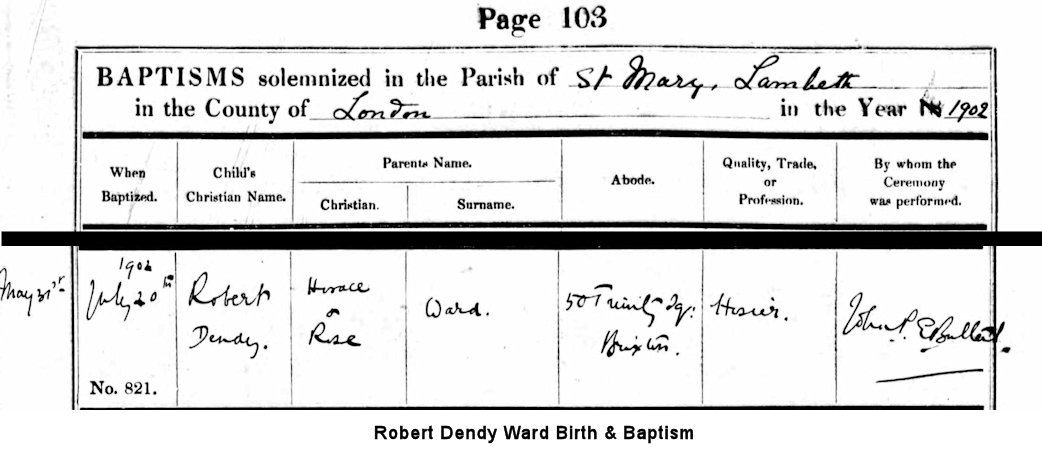 Page 103
BAPTISMS solemnized in the Parish of St Mary, Lambeth
in the County of London in the Year 1902
When Baptized.
Child's Christian Name.
Parents Name.
Christian.
Surname.
Abode.
Quality, Trade, or Profession.
By whom the Ceremony was performed.
May 31st
1902
July 20th
Robert
Dendy.
Horace
&
Rose
Ward.
50 Trinity Sq:
Brixton.
Hosier.
John P. E. Bullen
No. 821.
Robert Dendy Ward Birth & Baptism